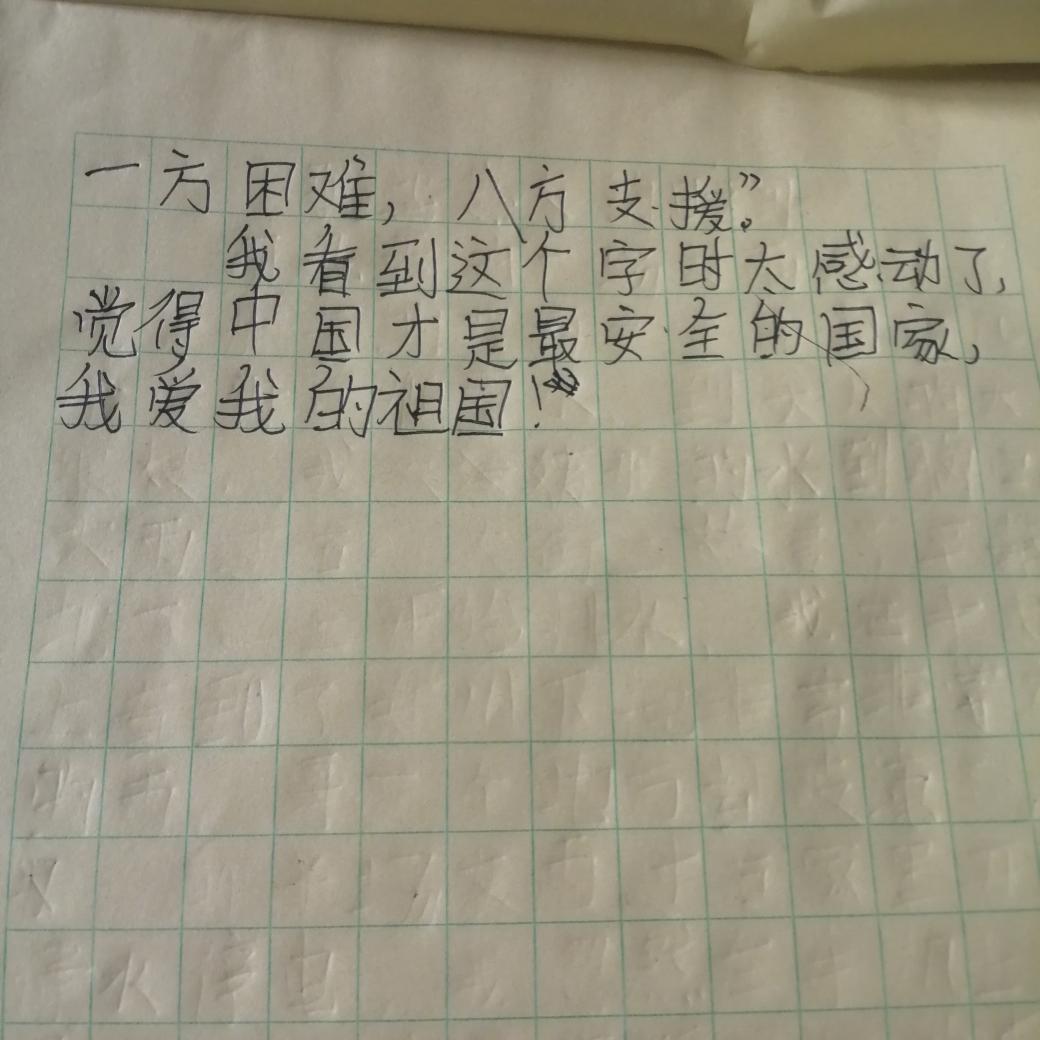 一方困难，八方支援”。
我看到这个字时太感动了，
觉得中国才是最安全的国家，
我爱我的祖国！